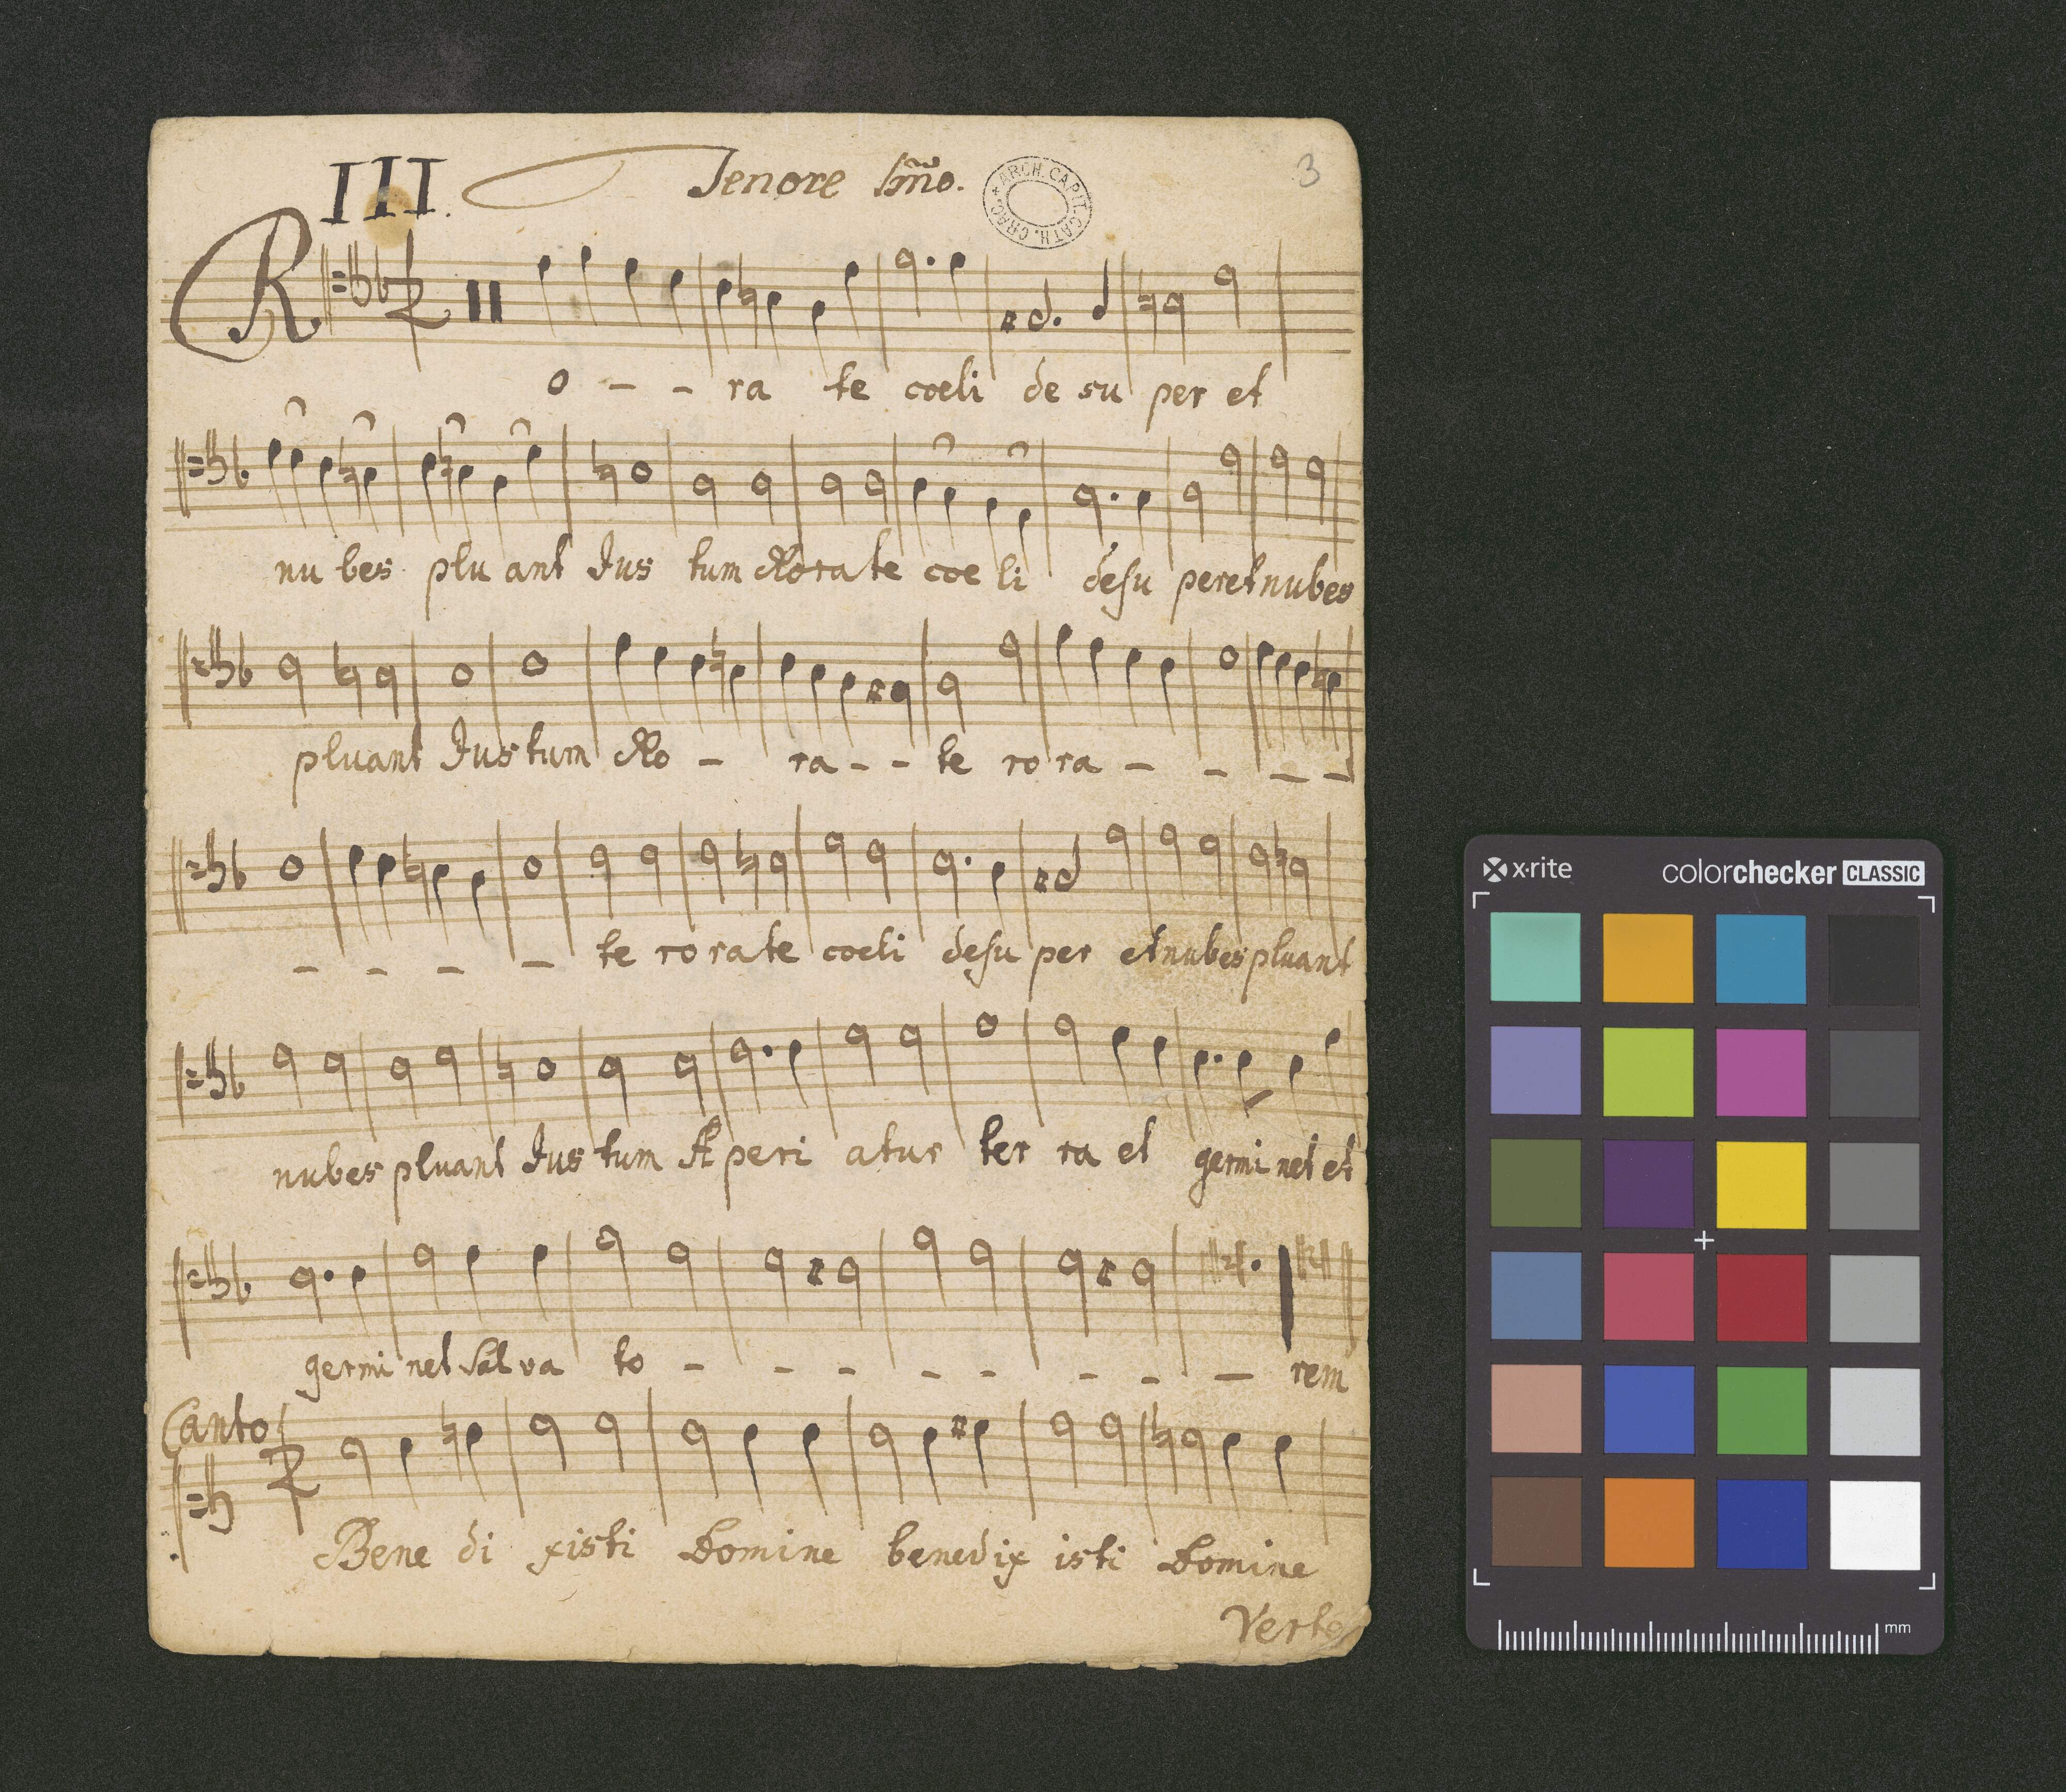 III. Tenore Imo. 3
ARCH. CAPIT. CATH. CRAC.
R
o - - ra te coeli de su per et
nu bes plu ant Jus tum Rorate coe li desu per et nubes
pluant Justum Ro - ra - - te ro ra - - - -
- - - - te ro rate coeli desu per et nubes pluant
nubes pluant Jus tum A peri atur ter ra et germi net et
germi net Sal va to - - - - - - - - rem
Canto
Bene di xisti Domine benedix isti Domine
Verte
x-rite colorchecker CLASSIC
mm